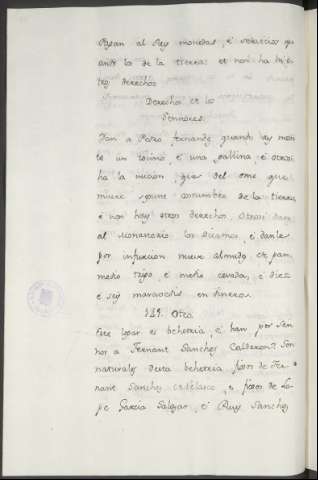 Pagan al Rey monedas, é servicios qu
ando los de la tierra: et non ha hi o
tros derechos
Derechos de los
Sennores.
Dan a Pedro fernandez quando hay mon
te un tocino é una gallina, é otrosi
ha la nucion que del ome que
muere segunt costumbre de la tierra,
é non hay otros derechos. Otrosi dan
al monasterio los diezmos, é danle
por infurcion nueve almudes de pan
medio trigo, é medio cevada, é diez
é seys maravedis en dineros.
Otea.
Este logar es behetria, é han por sen
nor a Fernant Sanchez Calderon: Son
naturales desta behetria fijos de Fer
nant Sanchez de Velasco, é fijos de Lo
pe Garcia Salazar, é Ruys Sanchez